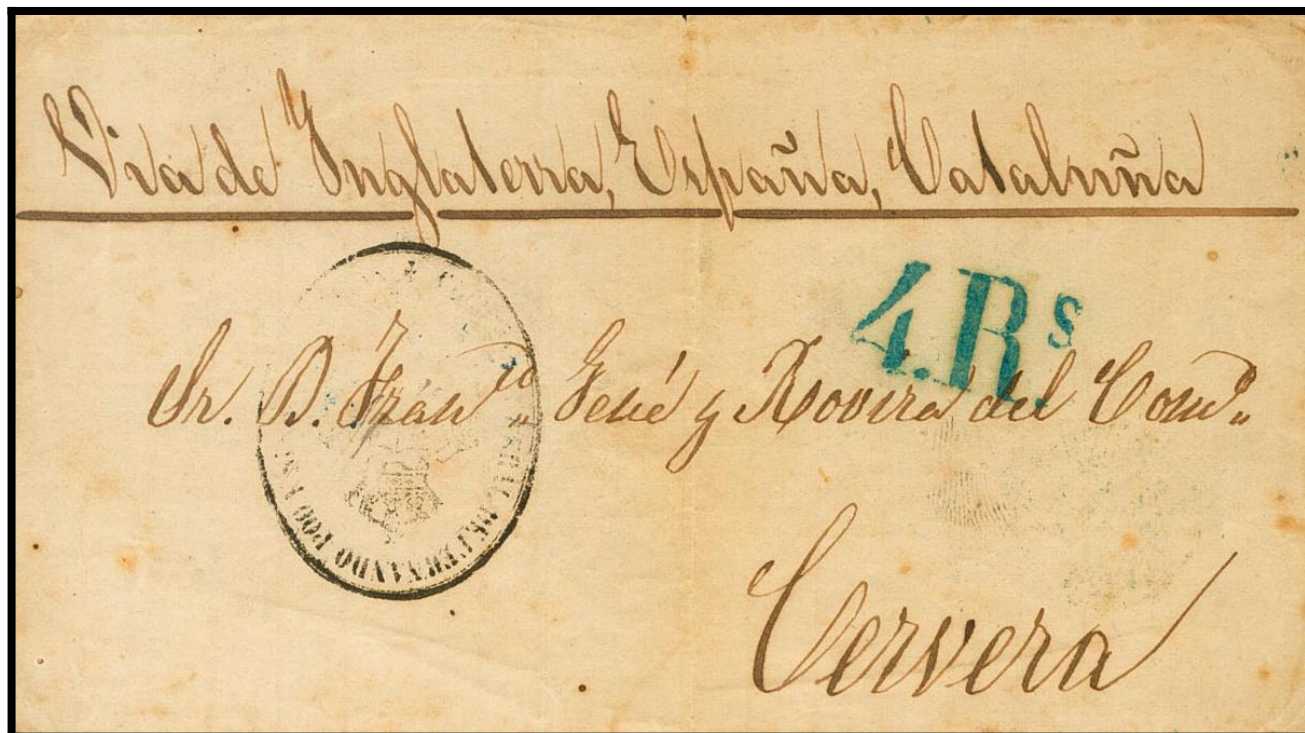 Via de Inglaterra, España, Cataluña
4.Rs.
Sr. D. Franco„ Gené y Rovira del Como„
FERNANDO POO
Cervera